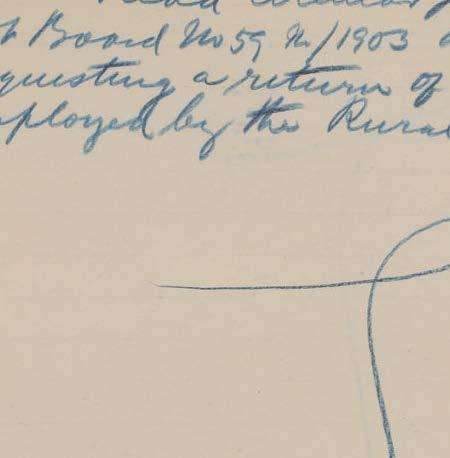 Read
t Board No 59 M/1903
questing a return of
ployed by the Rural